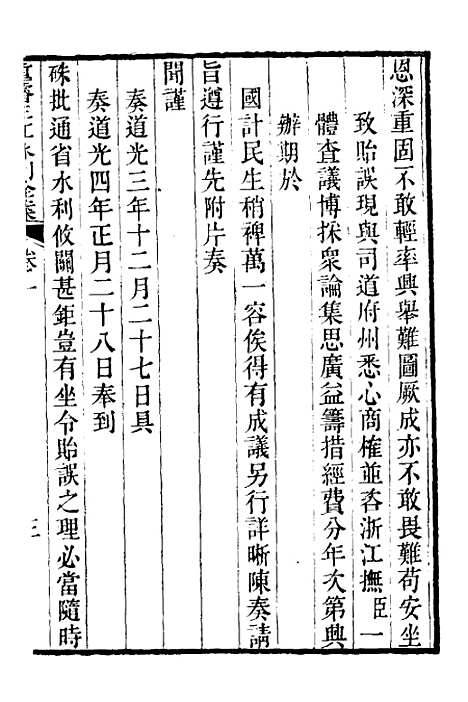 恩深重固不敢輕率興舉難圖厥成亦不敢畏難苟安坐
致貽誤現與司道府州悉心商榷並咨浙江撫臣一
體查議博採衆論集思廣益籌措經費分年次第興
辦期於
國計民生稍裨萬一容俟得有成議另行詳晰陳奏請
旨遵行謹先附片奏
聞謹
奏道光三年十二月二十七日具
奏道光四年正月二十八日奉到
硃批通省水利攸關甚鉅豈有坐令貽誤之理必當隨時
卷一
三